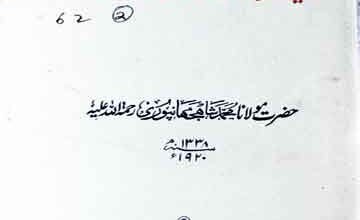 62 2
حضرت مولانا محمد شاہجہانپوری رحمۃ اللہ علیہ
۱۳۳۸ھ
۱۹۲۰ء